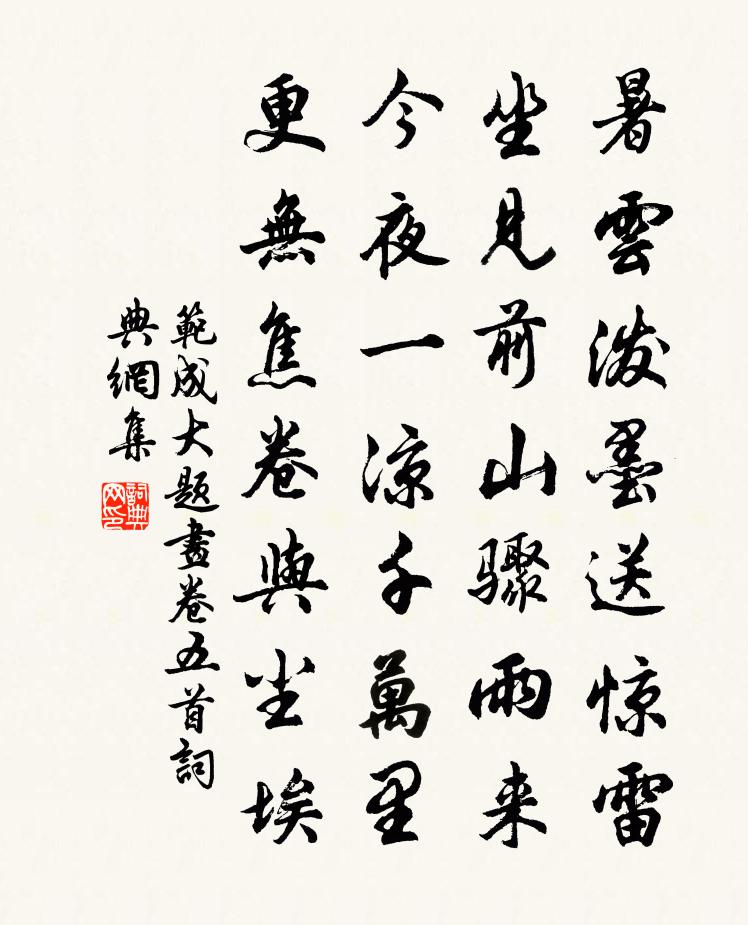 暑雲潑墨送惊雷
坐見前山驟雨来
今夜一涼千萬里
更無焦卷與尘埃
範成大題畫卷五首詞
典網集
詞典网印